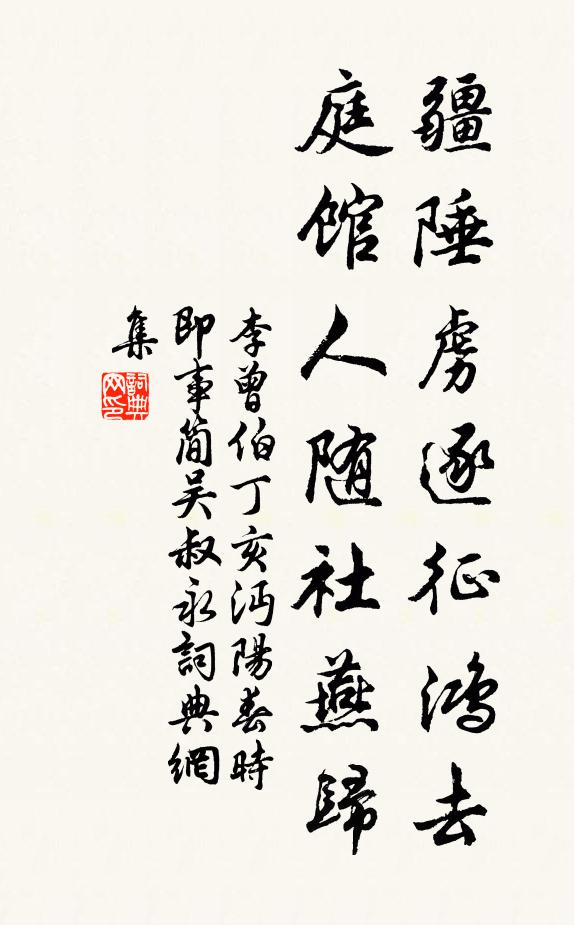 疆陲虜逐征鴻去
庭館人随社燕歸
李曾伯丁亥沔陽春時
即事簡吴叔永詞典網
集
詞典
网印